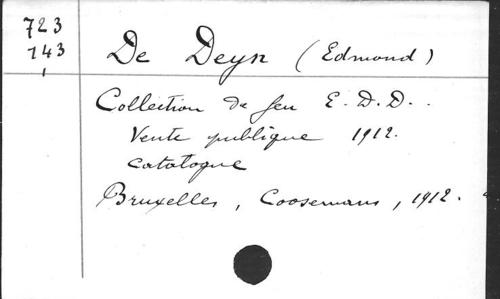 723
143
De Deyn (Edmond)
Collection de feu E. D. D..
Vente publique 1912.
catalogue
Bruxelles, Coosemans, 1912.